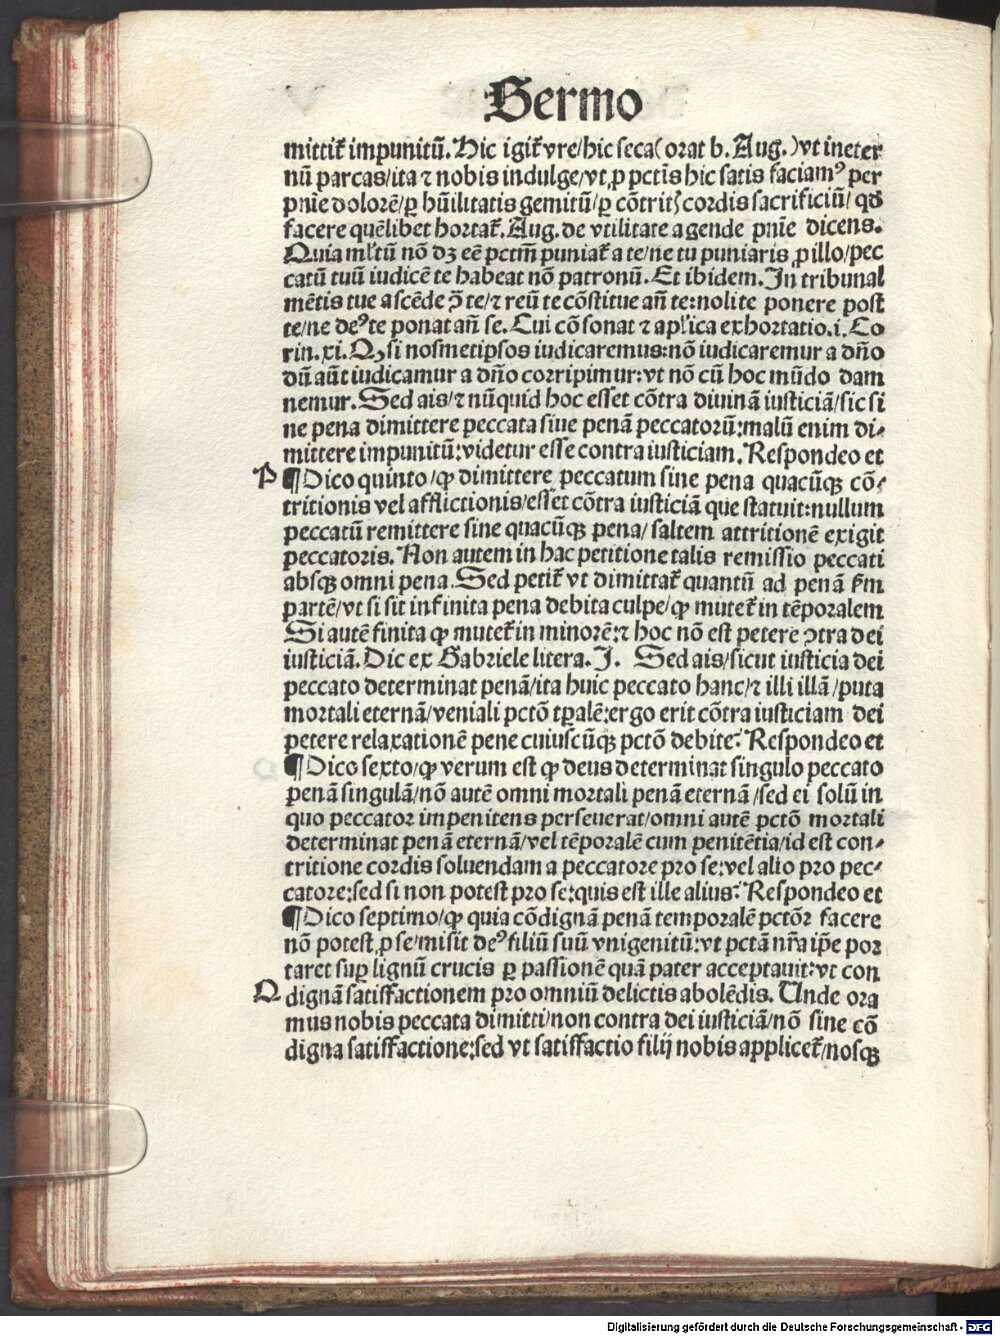 Sermo
mittit᷑ impunitū. Hic igit᷑ vre/hic seca(orat b. Aug.)vt ineter
nū parcas/ita ⁊ nobis indulge/vt ꝓ pctīs hic satis faciamꝰ per
pnie dolorē/ꝑ hūilitatis gemitū/ꝑ cōtriti cordis sacrificiū/qd̄
facere quēlibet hortat᷑. Aug. de vtilitate agende pnīe dicens.
Quia multū nō dꝫ eē pctm̄ puniat᷑ a te/ne tu puniaris ꝓ illo/pec
catū tuū iudicē te habeat nō patronū. Et ibidem. In tribunal
mētis tue ascēde ↄ̄ te/⁊ reū te cōstitue an̄ te:nolite ponere post
te/ne deꝰte ponat an̄ se. Cui cōsonat ⁊ apl'ica exhortatio.i. Co
rin.xi. Ꝙ si nosmetipsos iudicaremus:nō iudicaremur a dn̄o
dū aūt iudicamur a dn̄o corripimur:vt nō cū hoc mūdo dam
nemur. Sed ais/⁊ nūquid hoc esset cōtra diuinā iusticiā/sic si
ne pena dimittere peccata siue penā peccatorū:malū enim di⸗
mittere impunitū:videtur esse contra iusticiam. Respondeo et
P ¶ Dico quinto/ꝙ dimittere peccatum sine pena quacūqꝫ cō⸗
tritionis vel afflictionis/esset cōtra iusticiā que statuit:nullum
peccatū remittere sine quacūqꝫ pena/saltem attritionē exigit
peccatoris. Non autem in hac petitione talis remissio peccati
absqꝫ omni pena. Sed petit᷑ vt dimittat᷑ quantū ad penā ẜm
partē/vt si sit infinita pena debita culpe/ꝙ mutet᷑ in tēporalem
Si autē finita ꝙ mutet᷑ in minorē:⁊ hoc nō est petere ↄtra dei
iusticiā. Dic ex Gabriele litera. J. Sed ais/sicut iusticia dei
peccato determinat penā/ita huic peccato hanc/⁊ illi illā/puta
mortali eternā/veniali pctō tꝑalē:ergo erit cōtra iusticiam dei
petere relaxationē pene cuiuscūqꝫ pctō debite? Respondeo et
¶ Dico sexto/ꝙ verum est ꝙ deus determinat singulo peccato
penā singulā/nō autē omni mortali penā eternā/sed ei solū in
quo peccator impenitens perseuerat/omni autē pctō mortali
determinat penā eternā/vel tēporalē cum penitētia/id est con⸗
tritione cordis soluendam a peccatore pro se:vel alio pro pec⸗
catore:sed si non potest pro se:quis est ille alius? Respondeo et
¶ Dico septimo/ꝙ quia cōdignā penā temporalē pctōꝝ facere
nō potest ꝓ se/misit deꝰ filiū suū vnigenitū:vt pctā nr̄a ip̄e por
taret suꝑ lignū crucis ꝑ passionē quā pater acceptauit:vt con
Q dignā satisfactionem pro omniū delictis abolēdis. Unde ora
mus nobis peccata dimitti/non contra dei iusticiā/nō sine cō
digna satisfactione:sed vt satisfactio filij nobis applicet᷑/nosqꝫ
Digitalisierung gefördert durch die Deutsche Forschungsgemeinschaft - DFG